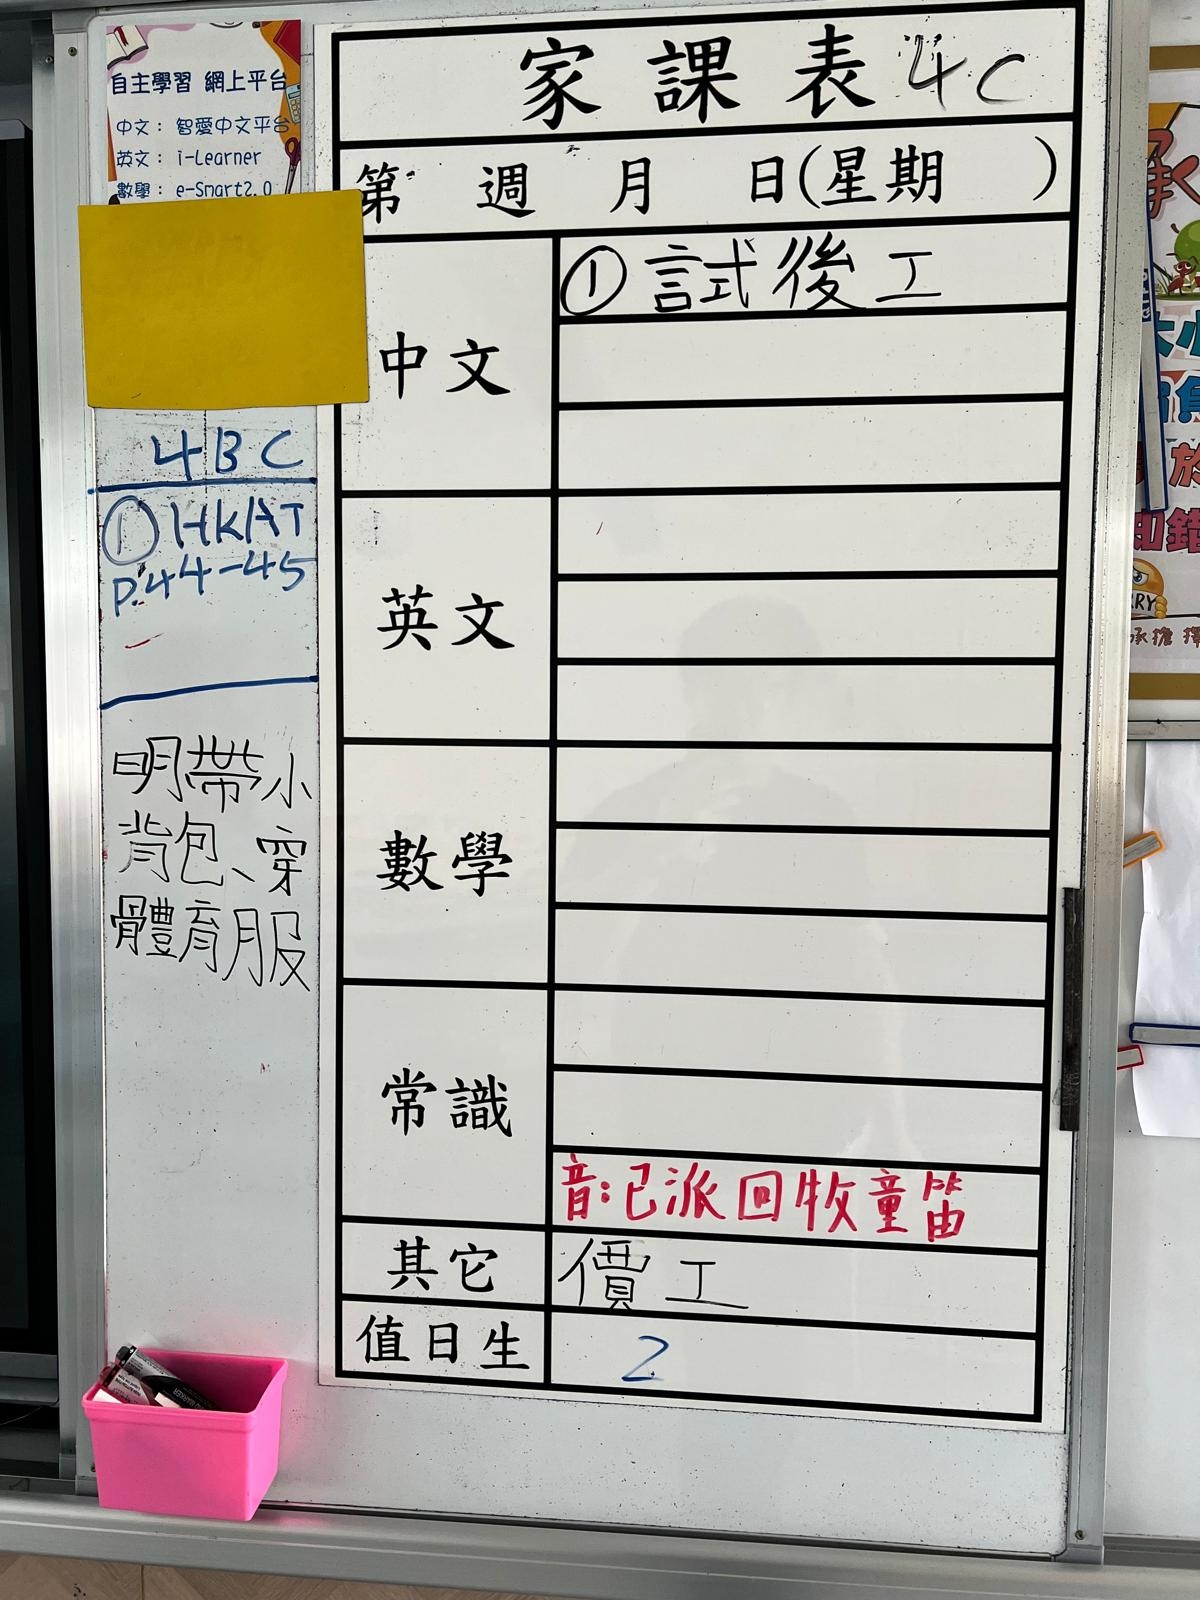 自主學習 網上平台
中文：智愛中文平台
英文：i-Learner
數學：e-Smart2.0
家課表 4C
第 週 月 日(星期 )
中文
①試後工
英文
數學
常識
音:已派回牧童笛
其它
價工
值日生
2
4BC
①HKAT
P.44-45
明帶小
背包、穿
體育服